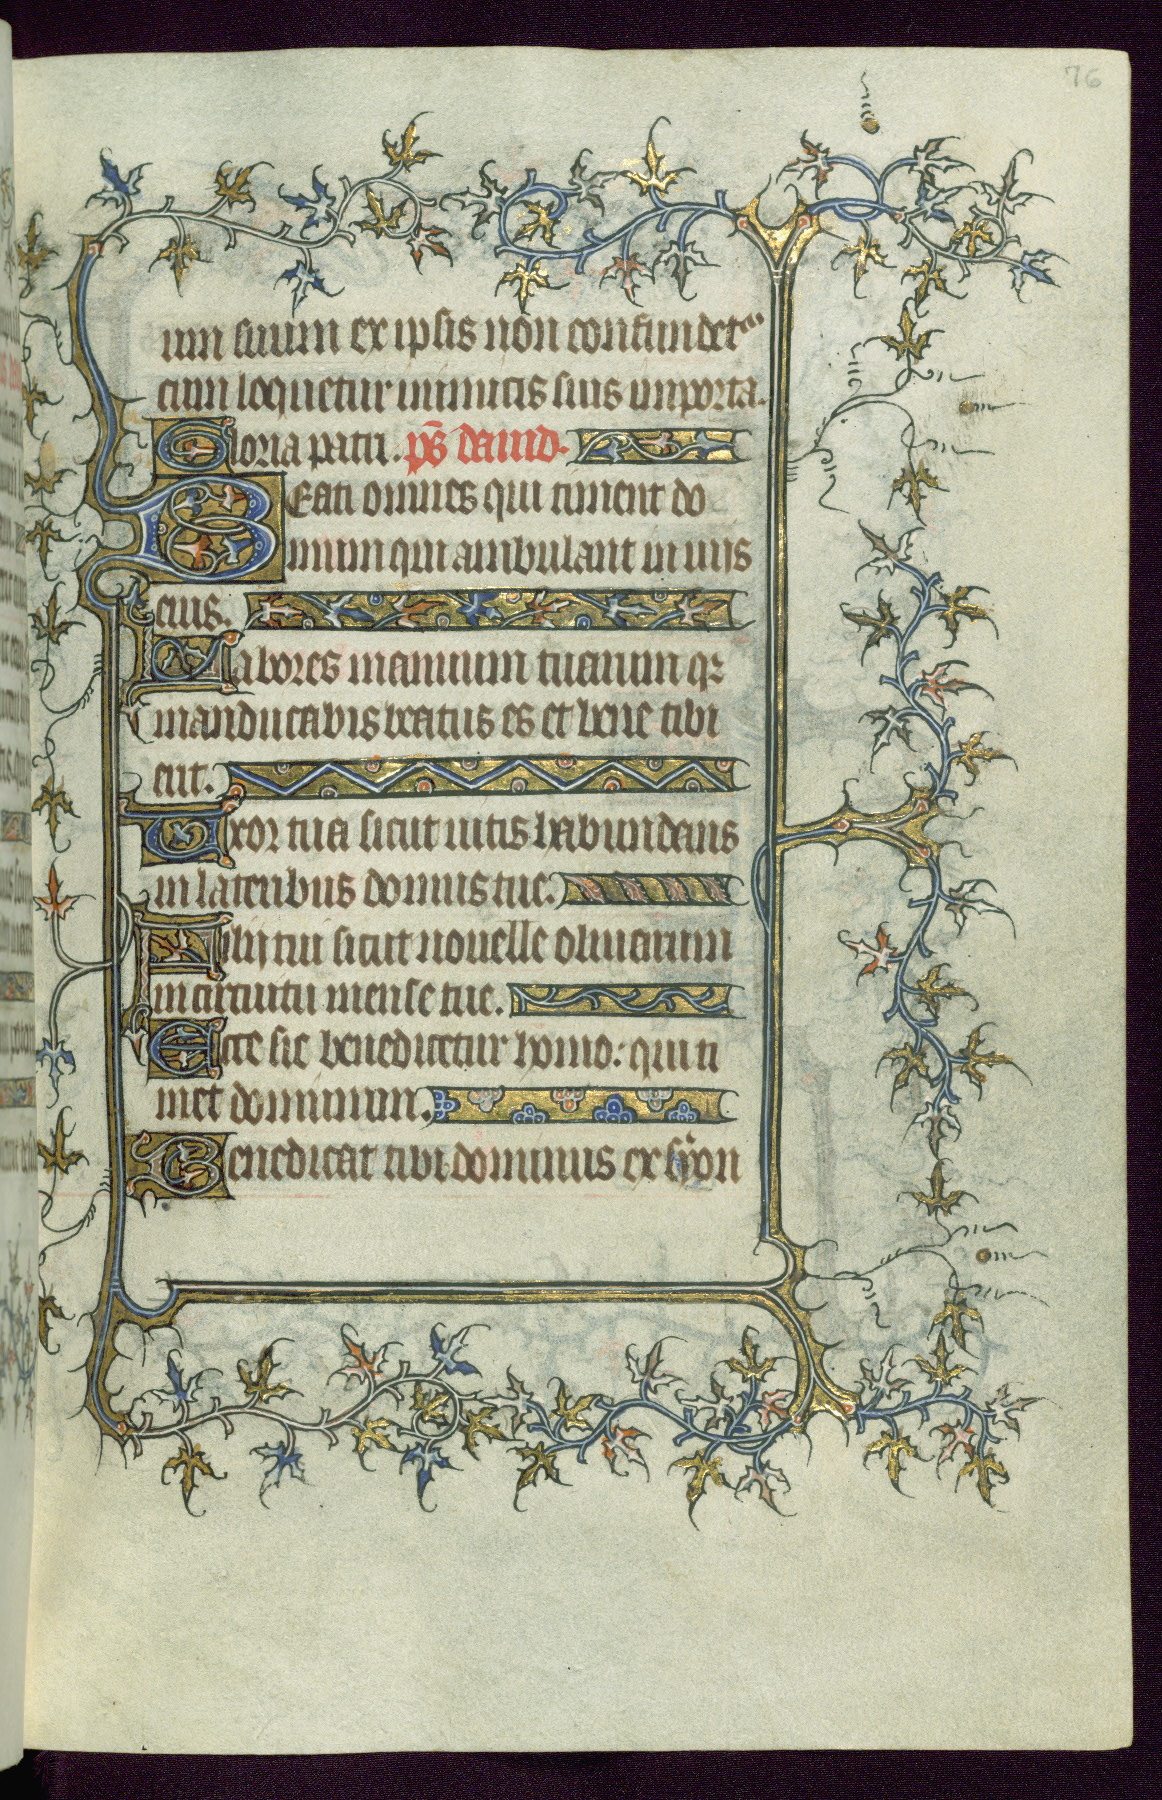 76
um suum ex ipsis non confundet᷑
cum loquetur inimicis suis in porta.
Gloria patri. ps̄ dauid.
BEati omnes qui timent do
minum qui ambulant in uijs
eius.
Labores manuum tuarum qr
manducabis beatus es et bene tibi
erit.
Uxor tua sicut uitis habundans
in lateribus domus tue.
Filij tui sicut nouelle oliuarum
in circuitu mense tue.
Ecce sic benedicetur homo: qui ti
met dominum.
Benedicat tibi dominus ex syon